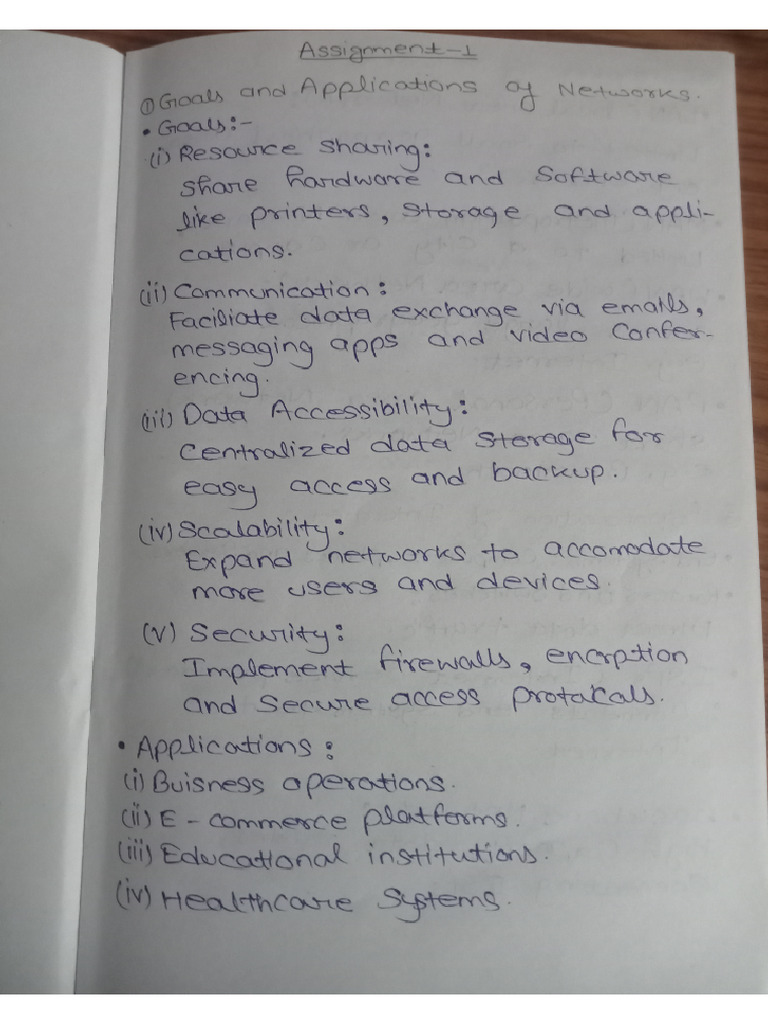 Assignment-1
① Goals and Applications of Networks.
• Goals:-
(i) Resource sharing:
share hardware and Software
like printers, storage and appli-
cations.
(ii) Communication:
Faciliate data exchange via emails,
messaging apps and video Confer-
encing.
(iii) Data Accessibility:
Centralized data storage for
easy access and backup.
(iv) Scalability:
Expand networks to accomodate
more users and devices.
(v) Security:
Implement firewalls, encrption
and secure access protakals.
• Applications:
(i) Buisness operations.
(ii) E-commerce platforms.
(iii) Educational institutions.
(iv) Healthcare Systems.